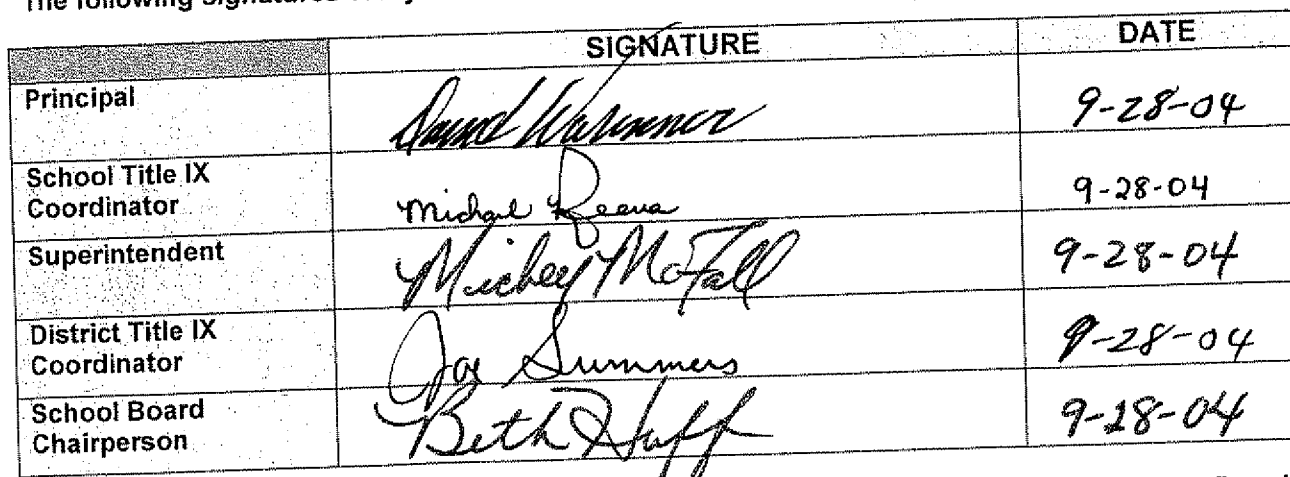 The following signatures
SIGNATURE DATE
Principal 9-28-04
School Title IX
Coordinator Michael 9-28-04
Superintendent Mickey McFall 9-28-04
District Title IX
Coordinator Joe Summers 9-28-04
School Board
Chairperson Beth Huff 9-28-04